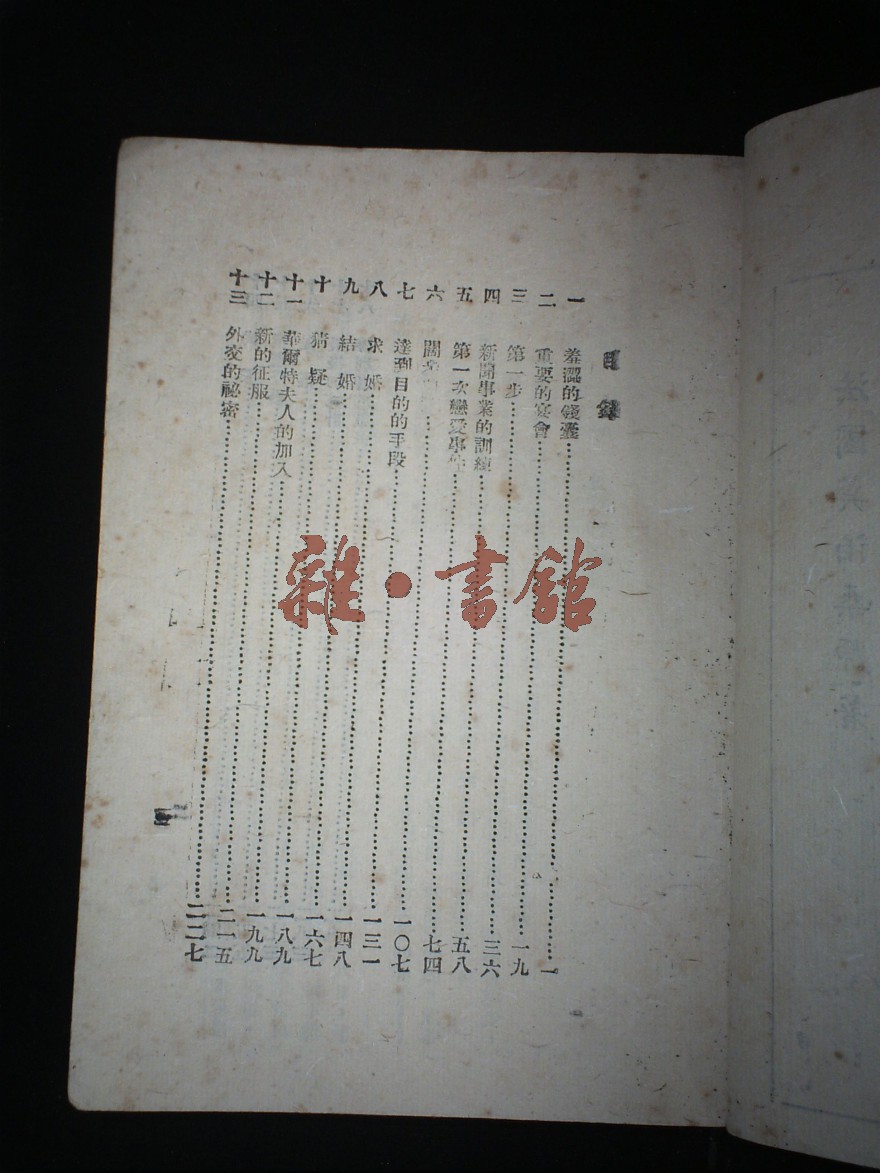 目錄
一 羞澀的錢囊 一
二 重要的宴會 一九
三 第一步 三六
四 新聞事業的訓練 五八
五 第一次戀愛事件 七四
六 闊 一〇七
七 達到目的的手段 一三一
八 求婚 一四八
九 結婚 一六七
十 猜疑 一八九
十一 華爾特夫人的加入 一九九
十二 新的征服 二一五
十三 外交的祕密 二二七
雜·書館